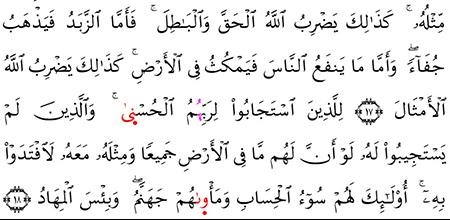 مِّثْلُهُۥۚ كَذَٰلِكَ يَضْرِبُ ٱللَّهُ ٱلْحَقَّ وَٱلْبَٰطِلَۚ فَأَمَّا ٱلزَّبَدُ فَيَذْهَبُ
جُفَآءًۖ وَأَمَّا مَا يَنفَعُ ٱلنَّاسَ فَيَمْكُثُ فِى ٱلْأَرْضِۚ كَذَٰلِكَ يَضْرِبُ ٱللَّهُ
ٱلْأَمْثَالَ ١٧ لِلَّذِينَ ٱسْتَجَابُوا۟ لِرَبِّهُمُ ٱلْحُسْنِىٰۚ وَٱلَّذِينَ لَمْ
يَسْتَجِيبُوا۟ لَهُۥ لَوْ أَنَّ لَهُم مَّا فِى ٱلْأَرْضِ جَمِيعًا وَمِثْلَهُۥ مَعَهُۥ لَٱفْتَدَوْا۟
بِهِۦٓۚ أُو۟لَٰٓئِكَ لَهُمْ سُوٓءُ ٱلْحِسَابِ وَمَأْوِىٰهُمْ جَهَنَّمُۖ وَبِئْسَ ٱلْمِهَادُ ١٨